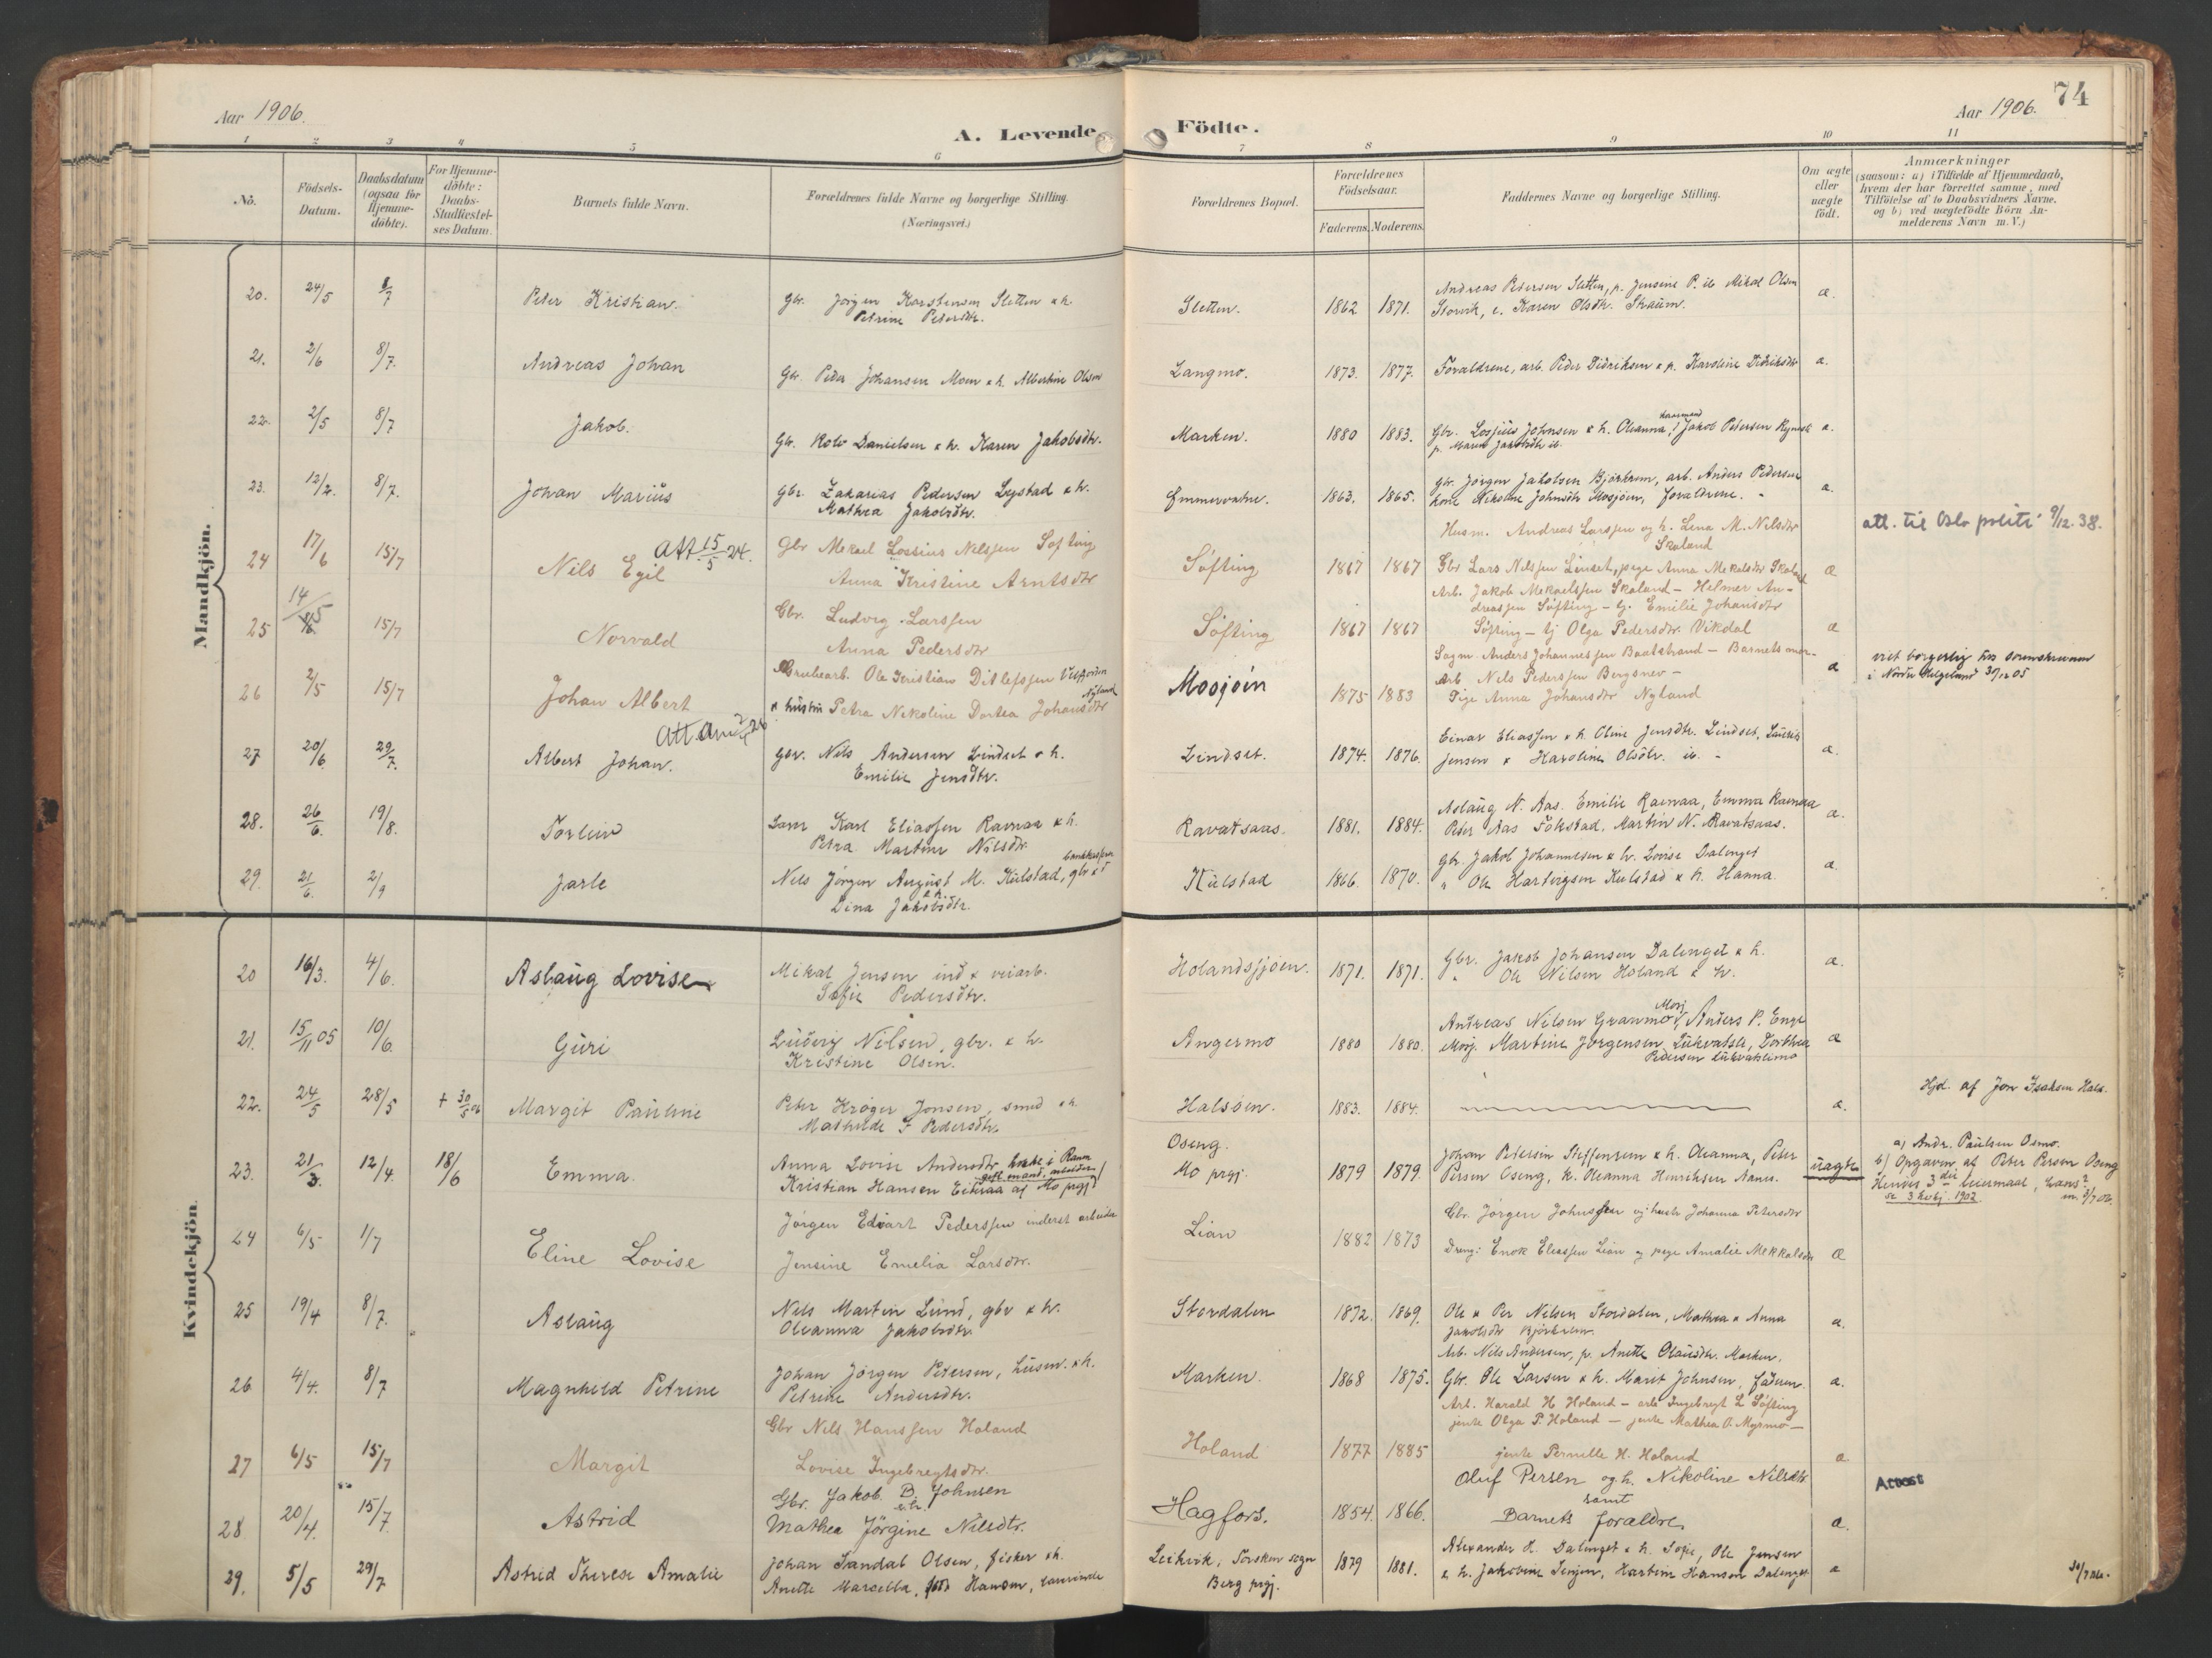 Aar 1906.
A. Levende
Födte.
Aar 1906.
74
1 2 3 4 5 6 7 8 9 10 11
No.
Födsels-Datum.
Daabsdatum (ogsaa for Hjemme-döbte).
For Hjemme-döbte: Daabs-Stadfæstel-ses Datum.
Barnets fulde Navn.
Forældrenes fulde Navne og borgerlige Stilling.
(Næringsvei.)
Forældrenes Bopæl.
Forældrenes Födselsaar.
Faderens. Moderens.
Faddernes Navne og borgerlige Stilling.
Om ægte eller uægte födt.
Anmærkninger
(saasom: a) i Tilfælde af Hjemmedaab,
hvem der har forrettet samme, med
Tilföielse af to Daabsvidners Navne.
og b) ved uægtefödte Börn An-
melderens Navn m. V.)
Mandkjön.
20. 24/5 8/7 Peter Kristian. Gbr. Jörgen Karstensen Sletten & h.
Petrine Petersdtr.
Sletten. 1862 1871. Andreas Petersen Sletten, p. Jensine P. ib Mikal Olsen
Storvik, e. Karen Olsdtr. Skaum. æ.
21. 2/6 8/7. Andreas Johan Gbr. Peder Johansen Moen & h. Albertine Olsen
Langmo. 1873. 1877. Forældrene, arb. Peder Didriksen & p. Karoline Didriksdtr æ.
22. 2/5 8/7 Jakob. Gbr. Rolv Danielsen & h. Karen Jakobsdtr.
Marken. 1880 1883. Gbr. Losjius Johnsen & h. Oleanna, Jakob Petersen
p. Maren Jakobsdtr ib. æ.
23. 12/2. 8/7. Johan Marius Gbr. Zakarias Pedersen Lystad & h.
Mathea Jakobsdtr.
Emmervatne. 1863. 1865. Gbr. Jörgen Jakobsen Björkrem, arb. Anders Pedersen
kone Nikoline Johnsdtr Mosjöen, forældrene. æ.
24 17/6 15/7 Nils Egil Att 15/5 24. Gbr Mekael Lossius Nilssen Softing
Anna Kristine Arntsdtr
Söfting 1867 1867 Husm. Andreas Larssen og h. Lena M. Nilsdtr
Skaland
Gbr Lars Nilssen Linset, pige Anna Mekalsdtr Skaland æ
att. til Oslo politi 9/12. 38.
25 14/5 15/7 Norvald Gbr. Ludvig Larssen
Anna Pedersdtr
Söfting 1867 1867 Arb. Jakob Mekaelssen Skaland - Helmer An-
dreassen Söfting - tj. Emilie Johansdtr
Söfting - tj Olga Pedersdtr. Vikdal æ
26 2/5 15/7 Johan Albert Grubearb. Ole Kristian Ditlefssen
& hustru Petra Nikoline Dortea Johansdtr Nyland
Mosjöen 1875 1883 Sagm. Anders Johannessen Baatstrand - Barnets mor-
Arb Nils Pederssen Bergsnev -
Pige Anna Johansdtr Nyland æ
viet borgerlig hos sorenskriveren
i Nordre Helgeland 30/12 05
27 20/6 29/7. Albert Johan. Gbr. Nils Andersen Lindset & h.
Emilie Jensdtr.
Lindset. 1874. 1876. Einar Eliassen & h. Oline Jensdtr. Lindset, Laurits
Jensen & Karoline Olsdtr. ib. æ.
28. 26/6. 19/8. Torleiv Karl Eliassen Ravnaa & h.
Petra Martine Nilsdtr
Ravatsaas. 1881. 1884. Aslaug N. Aas. Emilie Ravnaa, Emma Ravnaa
Peter Aas Fokstad. Martin N. Ravatsaas. æ.
29. 21/6. 2/9 Jarle Nils Jörgen August M. Kulstad, gbr & bankkasserer
& h. Dina Jakobsdtr.
Kulstad 1866. 1870. Gbr. Jakob Johannesen & h. Lovise Dalenget
" Ole Hartvigsen Kulstad & h. Hanna. æ.
Kvindekjön.
20 16/3. 4/6. Aslaug Lovise Mikal Jensen ind & veiarb.
Sofie Pedersdtr.
Holandsjöen. 1871. 1871. Gbr. Jakob Johansen Dalenget & h.
" Ole Nilsen Holand & h. æ.
21. 15/11 05 10/6. Guri Ludvig Nilsen, gbr. & h.
Kristine Olsen.
Angermo 1880 1880. Andreas Nilsen Granmo Mosj, Anders P. Enge
Mosj. Martine Jörgensen Lukvatsli, Dorthea
Pedersen Lukvatsmo æ
22. 24/5 28/5 + 30/5 06 Margit Pauline Peter Kröger Jonsen, smed & h.
Mathilde F Pedersdtr.
Halsöen. 1883. 1884. æ.
Hjd. af Jon Isaksen Hals.
23. 21/3. 12/4. 18/6 Emma. Anna Lovise Andersdtr.
Kristian Hansen Eiteraa af Mo prgj
gift mand, arbeider
Oseng.
Mo prgj. 1879 1879. Johan Petersen Steffensen & h. Oleanna, Peter
Persen Oseng, k. Oleanna Henriksen Aanes. uægte
a) Andr. Paulsen Osmo.
b) Opgaven af Peter Persen Oseng
Hendes 3die leiermaal, hans?
24 6/5 1/7 Eline Lovise Jörgen Edvart Pederssen inderst arbeider
Jensine Emelia Larsdtr.
Lian 1882 1873 Gbr. Jörgen Johnssen og hustr Johanna Petersdtr
Dreng: Enok Eliassen Lian og pige Amalie Mekkalsdtr Æ
25 19/4 8/7. Aslaug Nils Martin Lund, gbr & h.
Oleanna Jakobsdtr.
Stordalen 1872. 1869. Ole & Per Nilsen Stordalen, Mathea & Anna
Jakobsdtr Björkrem. æ.
26 4/4. 8/7 Magnhild Petrine Johan Jörgen Petersen, husm. & h.
Petrine Andersdtr.
Marken. 1868 1875. Arb. Nils Andersen, p. Anette Olausdtr. Marken.
Gbr. Ole Larsen & h. Marit Johnsen, faderen. æ.
27 6/5 15/7 Margit Gbr Nils Hanssen Holand
Lovise Ingebregtsdtr.
Holand 1877 1885 Arb. Harald H Holand - arb Ingebregt L Söfting
jente Olga P. Holand - jente Mathea O. Myrmo -
jente Pernille H. Holand æ
28 20/4. 15/7 Astrid Gbr. Jakob B. Johnsen
Mathea Jörgine Nilsdtr.
Hagfors. 1854. 1866. Oluf Persen og h. Nikoline Nilsdtr
samt
Barnets forældre æ.
Attest
29. 5/5 29/7 Astrid Therese Amalie Johan Sandal Olsen, fisker & h.
Anette Marsella, född Hansen,
Leikvik, Torsken sogn
Berg prgj. 1879 1881. Alexander H. Dalenget & h. Sofie, Ole Jensen
& h. Jakobine Hansen Dalenget æ